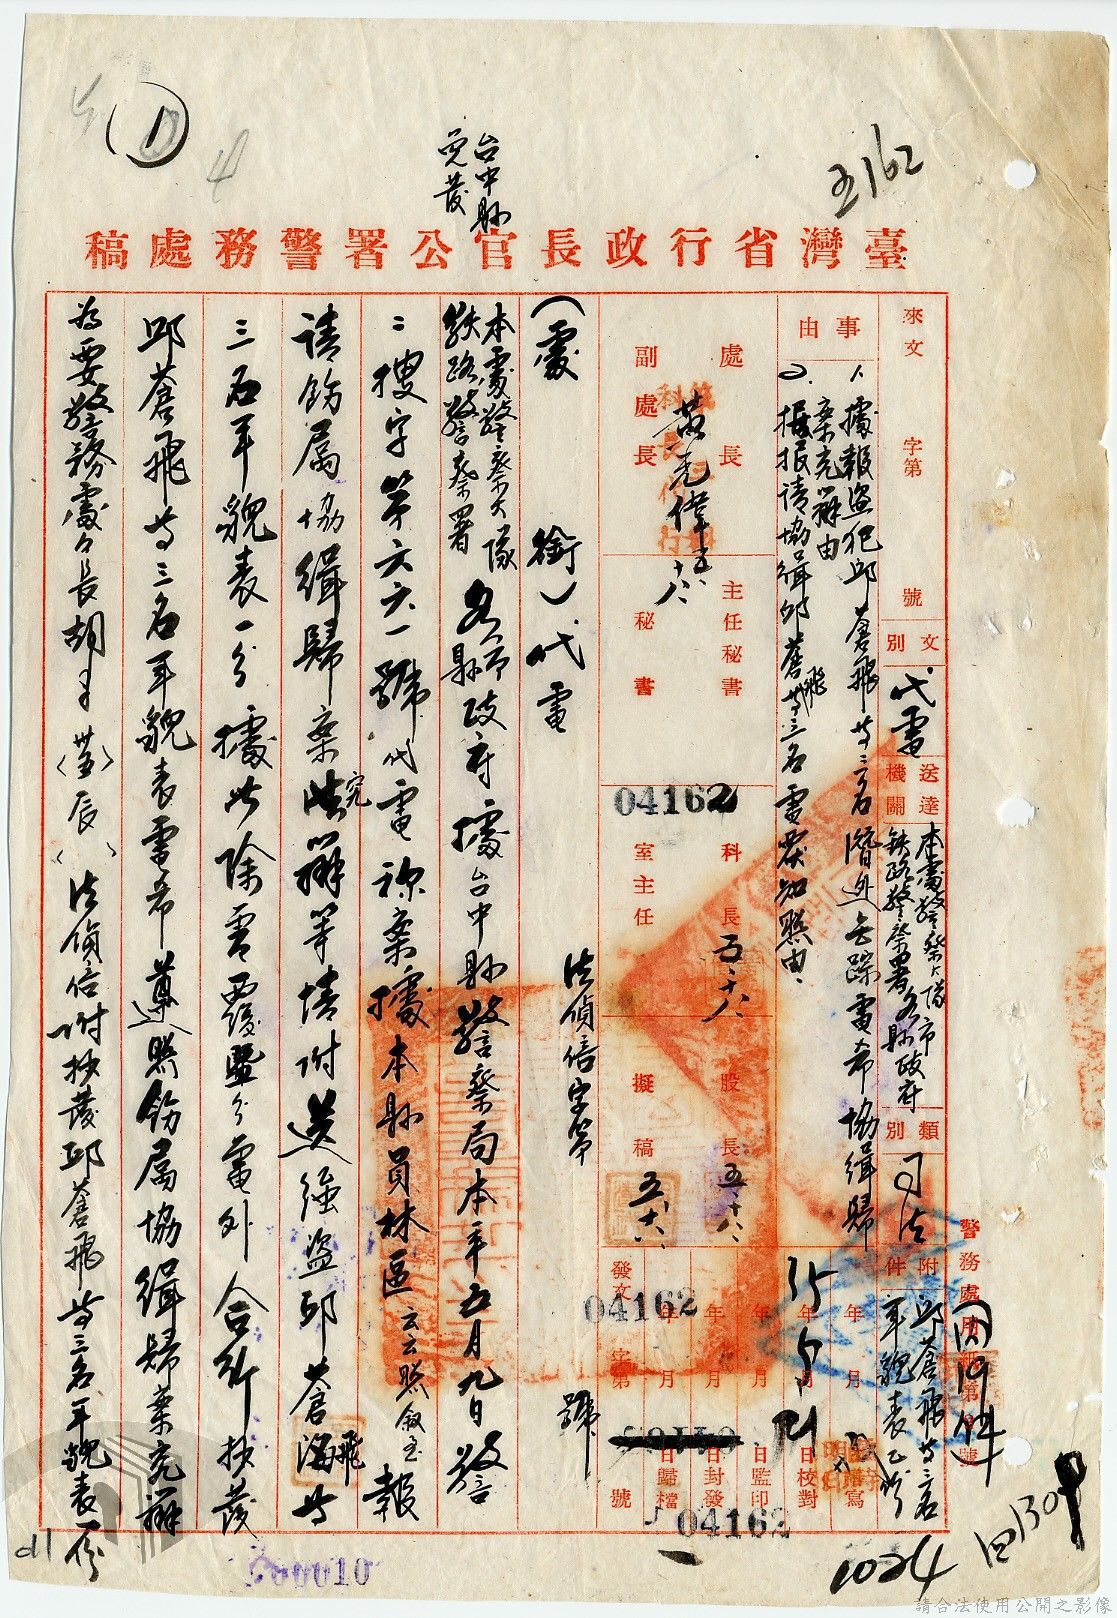 ①
4
台中縣
免發
五162
臺灣省行政長官公署警務處稿
來文 字第 號
文別 代電
送達機關 本處警察大隊 鐵路警察署 各縣市政府
類別 司法
附件 邱蒼飛等三名年貌表乙份
事由
1、據報盜犯邱蒼飛等三名潛逃無踪電希協緝歸
案究辦由
2、据报請協緝邱蒼飛等三名電覆知照由
處長
副處長
黃克偉 五、十八、
主任秘書
秘書
04162
科長 五、十八
室主任
股長 五、十八、
擬稿 五、十八
年 月 日繕寫
年 月 日校對
35 5 21
年 月 日監印
年 月 日封發
年 月 日歸檔
發文 字第 號
04162
04162
警務處用
第 號
(處銜)代電
法偵信字第 號
本處警察大隊
鐵路警察署
各縣市政府據台中縣警察局本年五月九日警
二搜字第六六一號代電称案據本縣員林區云云照叙至報
請飭屬協緝歸案究辦等情附送強盜邱蒼飛等
三名年貌表一份據此除電覆暨分電外合行抄發
邱蒼飛等三名年貌表電希遵照飭屬協緝歸案究辦
為要警務處處長胡〇〇(辰)法偵信附抄發邱蒼飛等三名年貌表一份
1024
1309
00010
請合法使用公開之影像